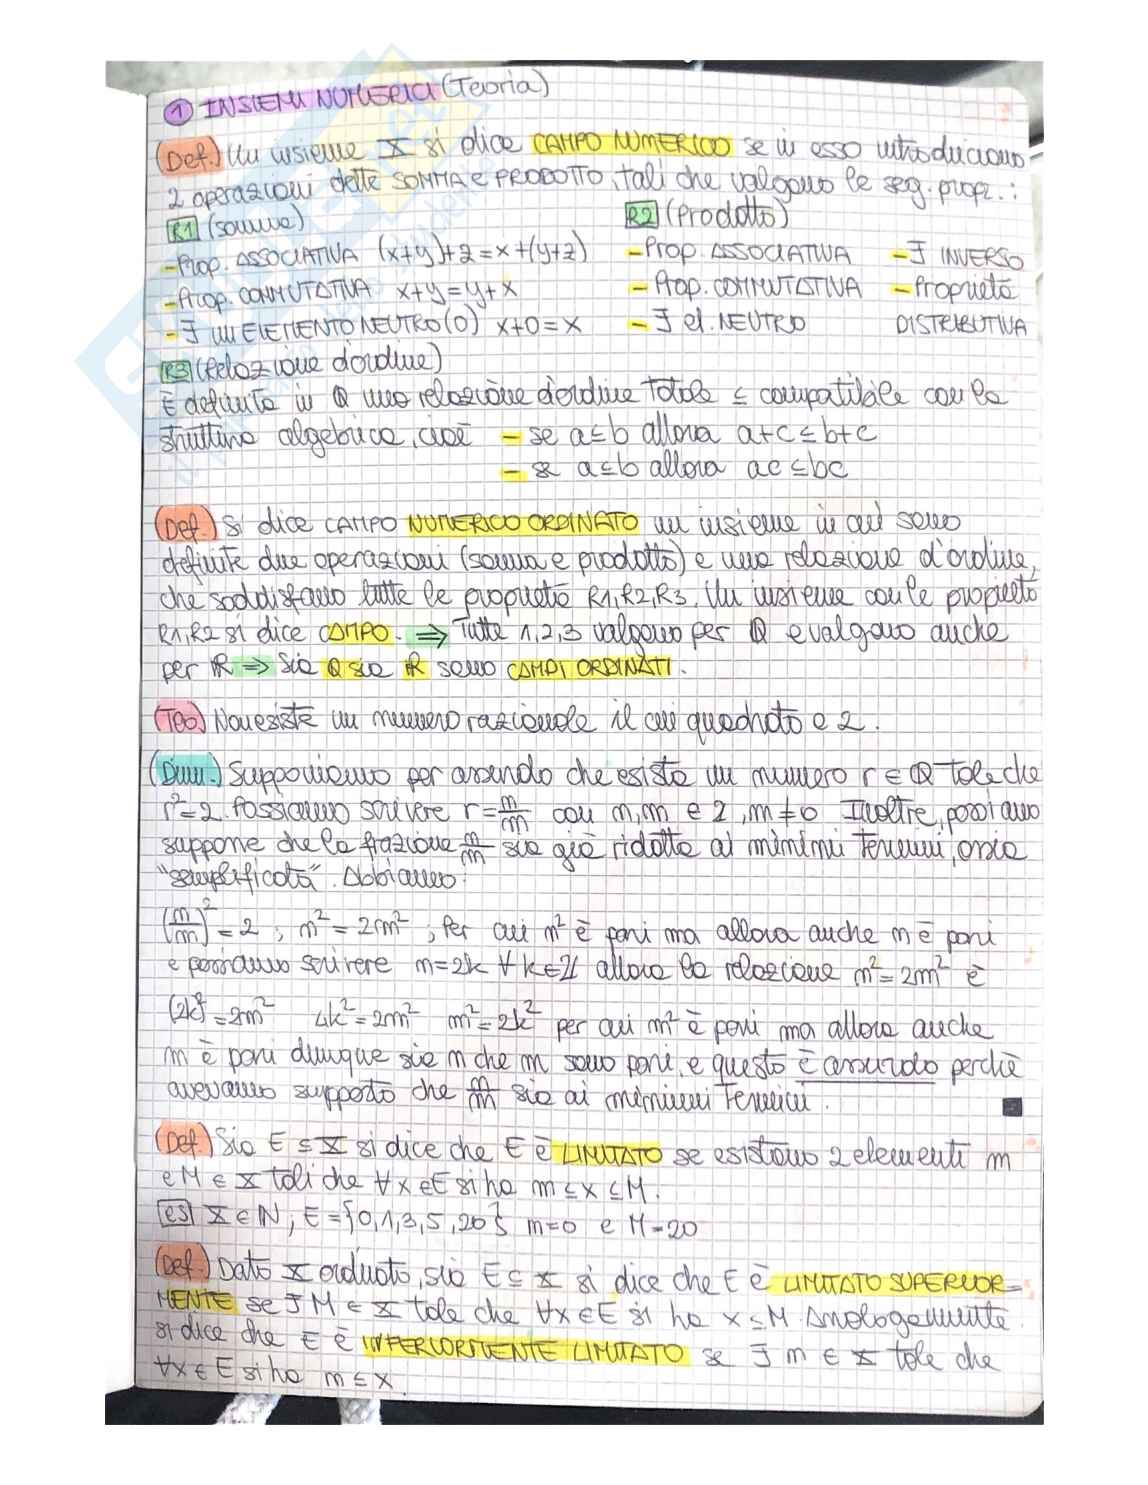 1 INSIEMI NUMERICI (Teoria)
(Def.) Un insieme X si dice CAMPO NUMERICO se in esso introduciamo
2 operazioni dette SOMMA e PRODOTTO, tali che valgono le seg. propr.:
R1 (somma) R2 (Prodotto)
- Prop. ASSOCIATIVA (x+y)+z=x+(y+z) - Prop. ASSOCIATIVA - ∃ INVERSO
- Prop. COMMUTATIVA x+y=y+x - Prop. COMMUTATIVA - Proprietà
- ∃ un ELEMENTO NEUTRO (0) x+0=x - ∃ el. NEUTRO DISTRIBUTIVA
R3 (Relazione d'ordine)
È definita in Q una relazione d'ordine totale ≤ compatibile con la
struttura algebrica, cioè - se a≤b allora a+c≤b+c
- se a≤b allora ac≤bc
(Def.) Si dice CAMPO NUMERICO ORDINATO un insieme in cui sono
definite due operazioni (somma e prodotto) e una relazione d'ordine,
che soddisfano tutte le proprietà R1,R2,R3. Un insieme con le proprietà
R1,R2 si dice CAMPO. ⇒ Tutte 1,2,3 valgono per Q e valgono anche
per R ⇒ Sia Q sia R sono CAMPI ORDINATI.
(Teo.) Non esiste un numero razionale il cui quadrato e 2.
(Dim.) Supponiamo per assurdo che esista un numero r ∈ Q tale che
r²=2. Possiamo scrivere r=n/m con m,n ∈ Z, m≠0 Inoltre, possiamo
supporre che la frazione n/m sia già ridotta ai minimi termini, ossia
"semplificata". Abbiamo:
(n/m)²=2 ; n²=2m² ; Per cui n² è pari ma allora anche n è pari
e possiamo scrivere n=2k ∀ k∈Z allora la relazione n²=2m² è
(2k)²=2m² 4k²=2m² m²=2k² per cui m² è pari ma allora anche
m è pari dunque sia n che m sono pari, e questo è assurdo perchè
avevamo supposto che n/m sia ai minimi termini.
(Def.) Sia E ⊆ X si dice che E è LIMITATO se esistono 2 elementi m
e M ∈ X tali che ∀x∈E si ha m≤x≤M.
es X∈N, E={0,1,3,5,20} m=0 e M=20
(Def.) Dato X ordinato, sia E⊆X si dice che E è LIMITATO SUPERIOR=
MENTE se ∃ M ∈ X tale che ∀x∈E si ha x≤M. Analogamente
si dice che E è INFERIORMENTE LIMITATO se ∃ m ∈ X tale che
∀x∈E si ha m≤x.